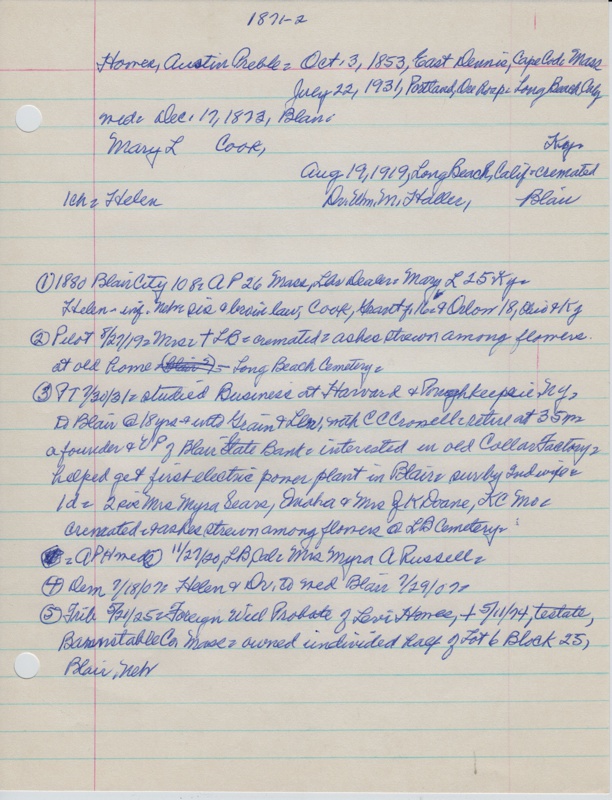 1871-2
Howes, Austin Preble = Oct. 3, 1853, East Dennis, Cape Cod, Mass
July 22, 1931, Portland, Ore Long Beach Caly
med = Dec. 17, 1873, Blair:
Mary L Cook, Ky =
Aug 19, 1919, Long Beach, Calif = cremated
1ch = Helen Dr. Wm. M. Haller, Blair
① 1880 Blair City 108 = A P 26 Mass, Lbr Dealer = Mary L 25 Ky =
Helen - inf. Nebr sis & bro in law, Cook, Grant f. 16 & Orlow 18, Ohio & Ky
② Pilot 8/27/19 = Mrs = + LB = cremated = ashes strewn among flowers
at old home = Long Beach Cemetery =
③ PT 7/30/31 = studied Business at Harvard & Poughkeepsie Ny =
Blair @ 18 yrs & into Grain & Lbr, with C C Crowell = retired at 35 =
a founder & VP of Blair State Bank = interested in old Collar Factory =
helped get first electric power plant in Blair = sur by 2nd wife &
1d = 2 sis Mrs Myra Sears, Omaha & Mrs J K Doane, KC Mo =
cremated & ashes strewn among flowers @ LB Cemetery =
= A P H med 11/27/20, LB Cal = Mrs Myra A Russell =
④ Dem 7/18/07 = Helen & Dr. to wed Blair 7/29/07 =
⑤ Trib 5/21/25 = Foreign Will Probate of Levi Howes, + 5/11/74, testate,
Barnstable Co Mass = owned undivided half of Lot 6 Block 25,
Blair, Neb